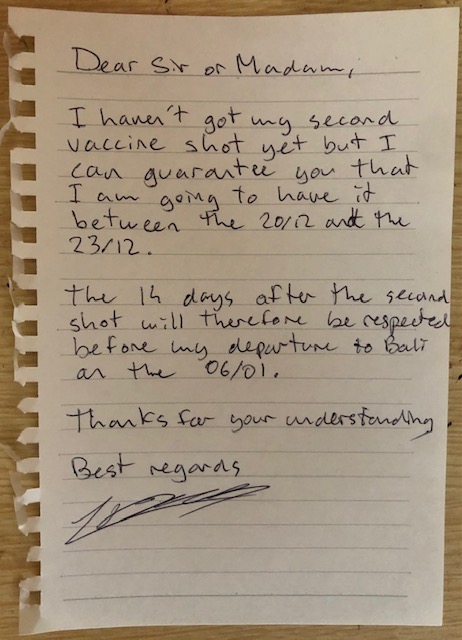 Dear Sir or Madam,
I haven't got my second
vaccine shot yet but I
can guarantee you that
I am going to have it
between the 20/12 and the
23/12.
The 14 days after the second
shot will therefore be respected
before my departure to Bali
on the 06/01.
Thanks for your understanding
Best regards